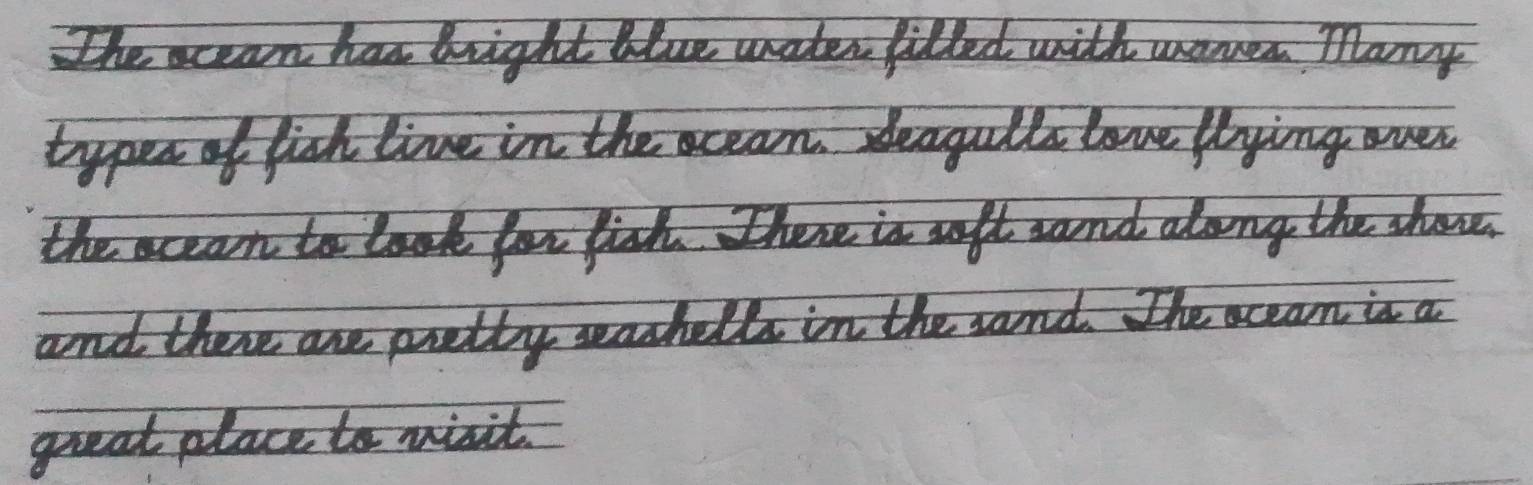 The ocean has bright blue water filled with waves. Many
types of fish live in the ocean. Seagulls love flying over
the ocean to look for fish. There is soft sand along the shore,
and there are pretty seashells in the sand. The ocean is a
great place to visit.